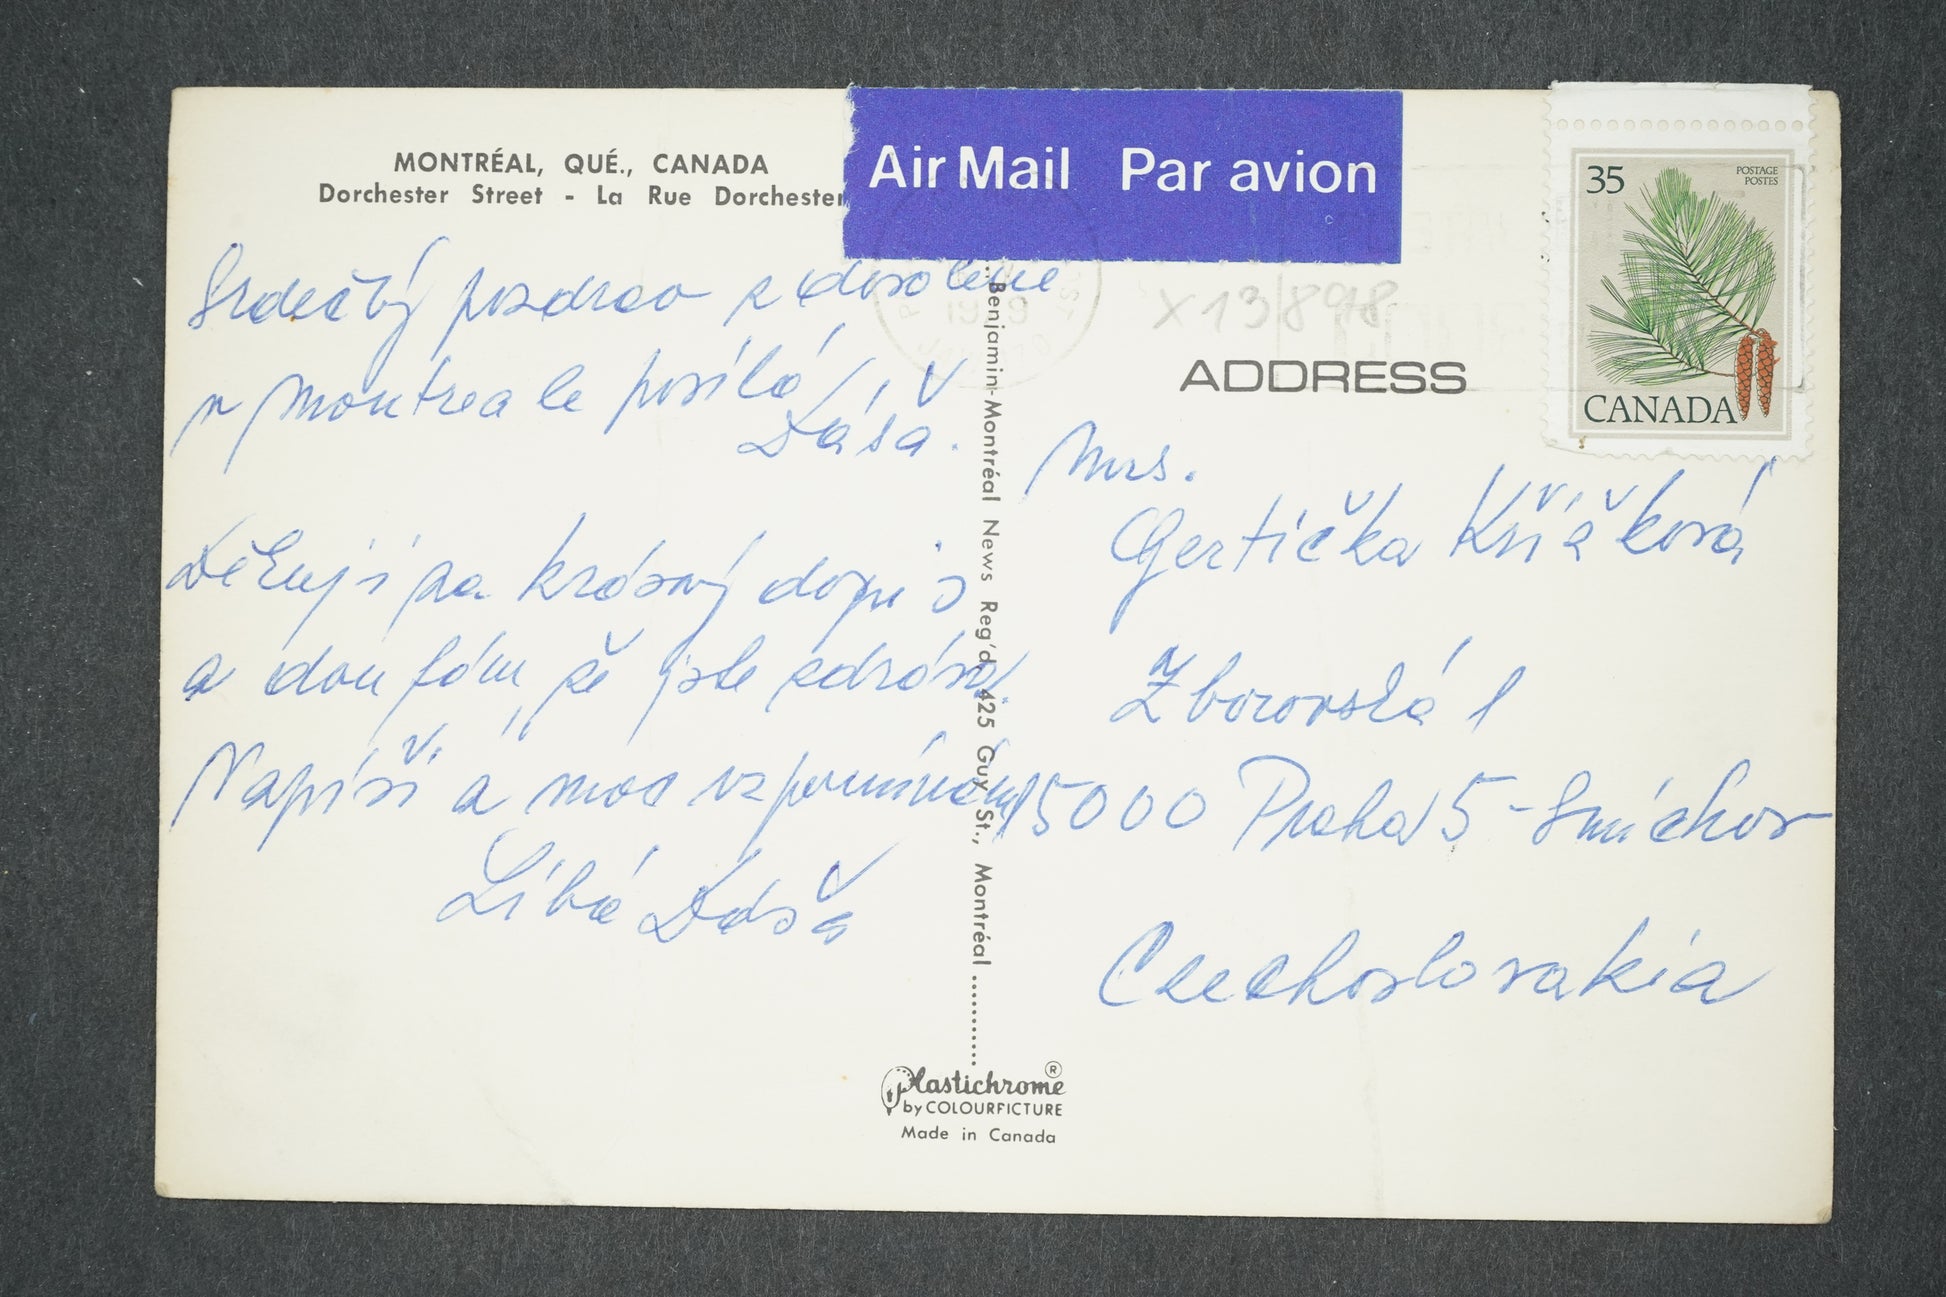 MONTRÉAL, QUÉ., CANADA
Dorchester Street - La Rue Dorchester
Air Mail Par avion
35
POSTAGE
POSTES
CANADA
Srdečný pozdrav z dovolené
v Montreale posílá
Dáša.
Děkuji za krásný dopis
a doufám, že jste zdráva.
Napíši a moc vzpomínám
Líbá Dáša
X13/898
ADDRESS
Mrs.
Gertička Kříčková
Zborovská 1
15000 Praha 5 - Smíchov
Czechoslovakia
Benjamin-Montréal News Reg'd., 425 Guy St., Montréal
Plastichrome ®
by COLOURPICTURE
Made in Canada